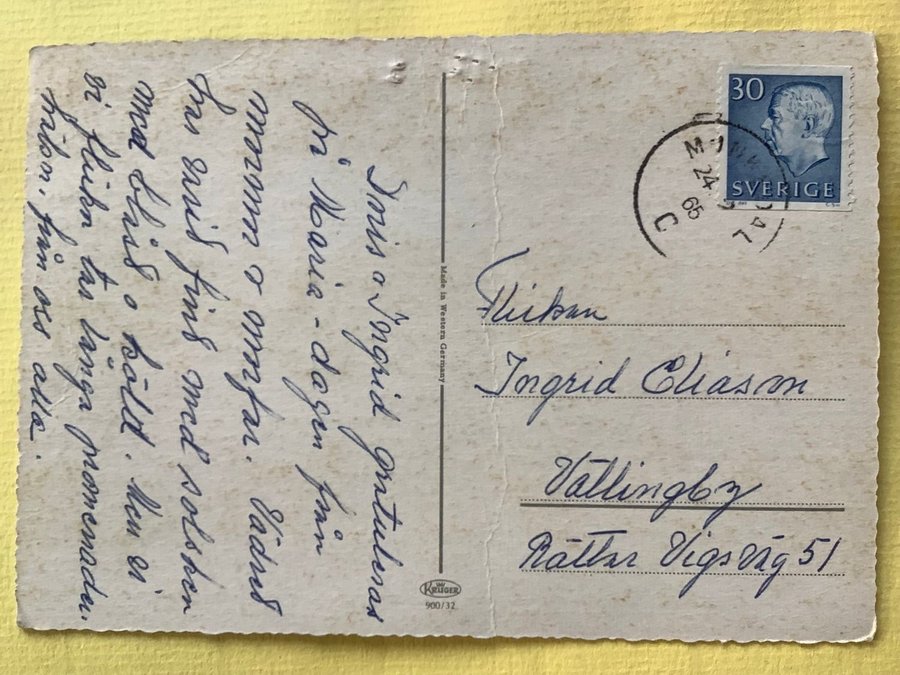 Doris o Ingrid gratuleras
på Maria-dagen från
mormor o morfar. Vädret
har varit fint med solsken
med blåst o kallt. Men vi
vi flickor tar långa promenader.
hälsn. från oss alla.
Made in Western Germany
KRÜGER
900/32
30
SVERIGE
24
65
C
Flickan
Ingrid Eliasson
Vällingby
Rättar Vigsväg 51